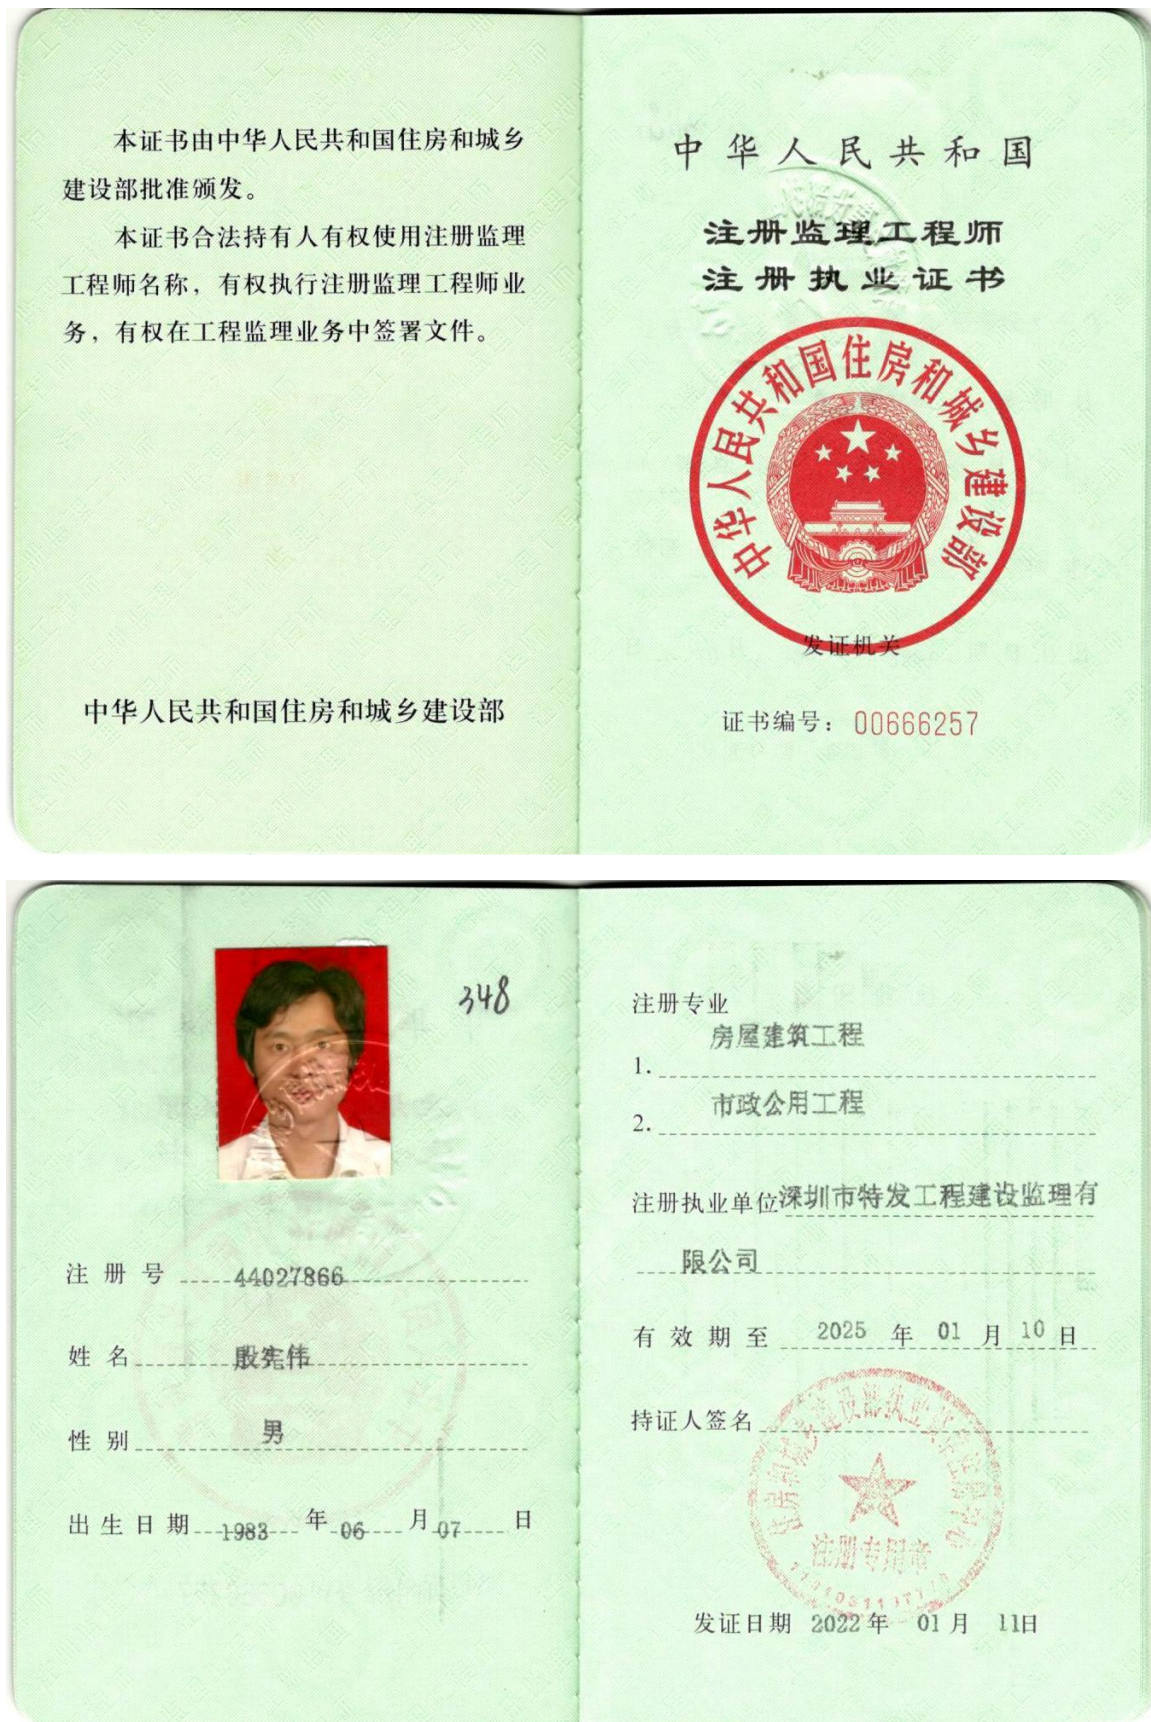 本证书由中华人民共和国住房和城乡
建设部批准颁发。
本证书合法持有人有权使用注册监理
工程师名称，有权执行注册监理工程师业
务，有权在工程监理业务中签署文件。
中华人民共和国住房和城乡建设部
中华人民共和国
注册监理工程师
注册执业证书
中华人民共和国住房和城乡建设部
发证机关
证书编号：00666257
348
注册号 44027866
姓名 殷宪伟
性别 男
出生日期 1983 年 06 月 07 日
注册专业
房屋建筑工程
1.
市政公用工程
2.
注册执业单位 深圳市特发工程建设监理有
限公司
有效期至 2025 年 01 月 10 日
持证人签名
住房和城乡建设部执业资格注册中心
注册专用章
发证日期 2022 年 01 月 11 日